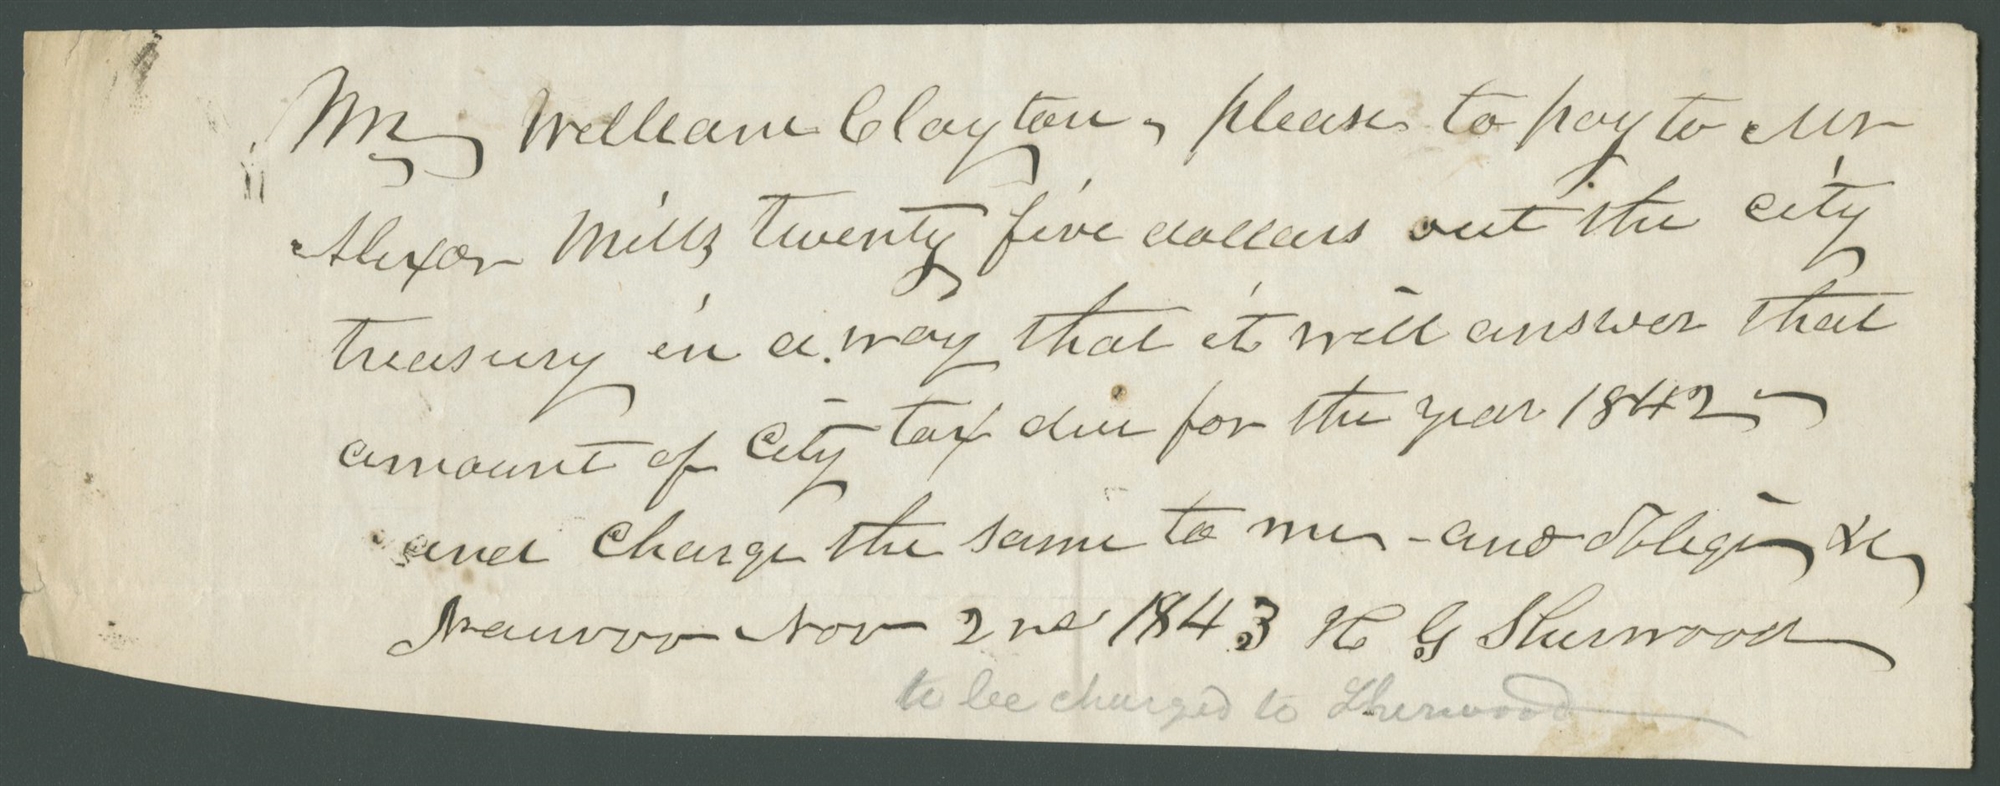 Mr William Clayton, please to pay to Mr
Alexr Mills twenty five dollars out the city
treasury in a way that it will answer that
amount of City tax due for the year 1842
and charge the same to me - and oblige &c
Nauvoo Nov 2nd 1843 H G Sherwood
to be charged to Sherwood